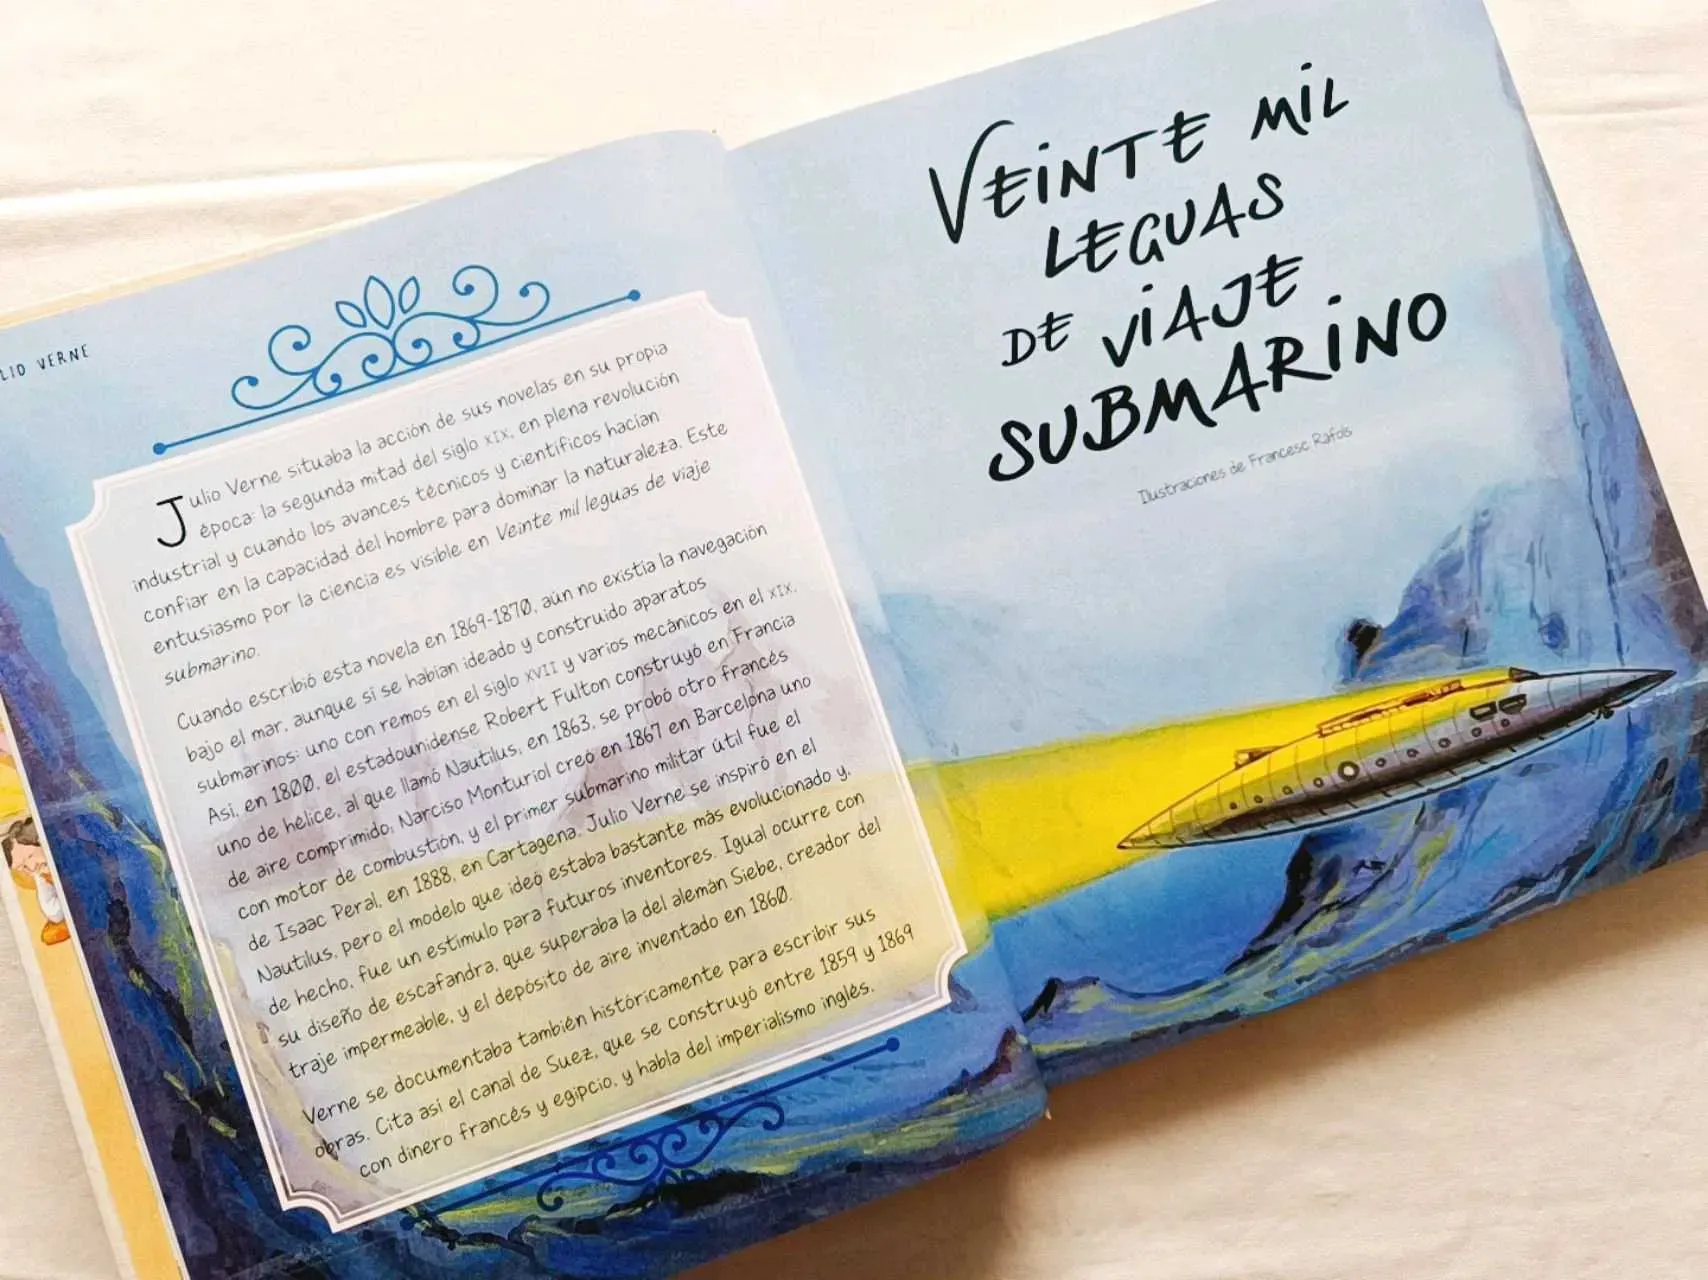 LIO VERNE
Julio Verne situaba la acción de sus novelas en su propia
época: la segunda mitad del siglo XIX, en plena revolución
industrial y cuando los avances técnicos y científicos hacían
confiar en la capacidad del hombre para dominar la naturaleza. Este
entusiasmo por la ciencia es visible en Veinte mil leguas de viaje
submarino.
Cuando escribió esta novela en 1869-1870, aún no existía la navegación
bajo el mar, aunque sí se habían ideado y construido aparatos
submarinos: uno con remos en el siglo XVII y varios mecánicos en el XIX.
Así, en 1800, el estadounidense Robert Fulton construyó en Francia
uno de hélice, al que llamó Nautilus, en 1863, se probó otro francés
de aire comprimido; Narciso Monturiol creó en 1867 en Barcelona uno
con motor de combustión, y el primer submarino militar útil fue el
de Isaac Peral, en 1888, en Cartagena. Julio Verne se inspiró en el
Nautilus, pero el modelo que ideó estaba bastante más evolucionado y,
de hecho, fue un estímulo para futuros inventores. Igual ocurre con
su diseño de escafandra, que superaba la del alemán Siebe, creador del
traje impermeable, y el depósito de aire inventado en 1860.
Verne se documentaba también históricamente para escribir sus
obras. Cita así el canal de Suez, que se construyó entre 1859 y 1869
con dinero francés y egipcio, y habla del imperialismo inglés.
VEINTE MIL
LEGUAS
DE VIAJE
SUBMARINO
Ilustraciones de Francesc Ràfols